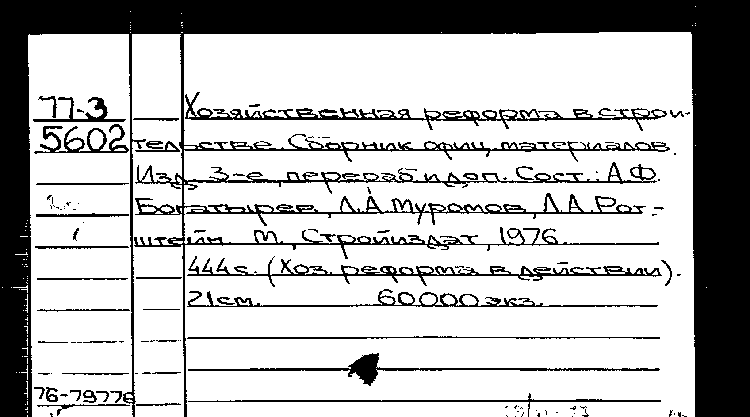 77-3 Хозяйственная реформа в строи-
5602 тельстве. Сборник офиц. материалов.
Изд. 3-е, перераб и доп. Сост.: А.Ф.
Богатырев, Л.А Муромов, Л.А. Рот-
штейн. М., Стройиздат, 1976.
444 с. (Хоз. реформа в действии).
21 см. 60000 экз.
76-79776